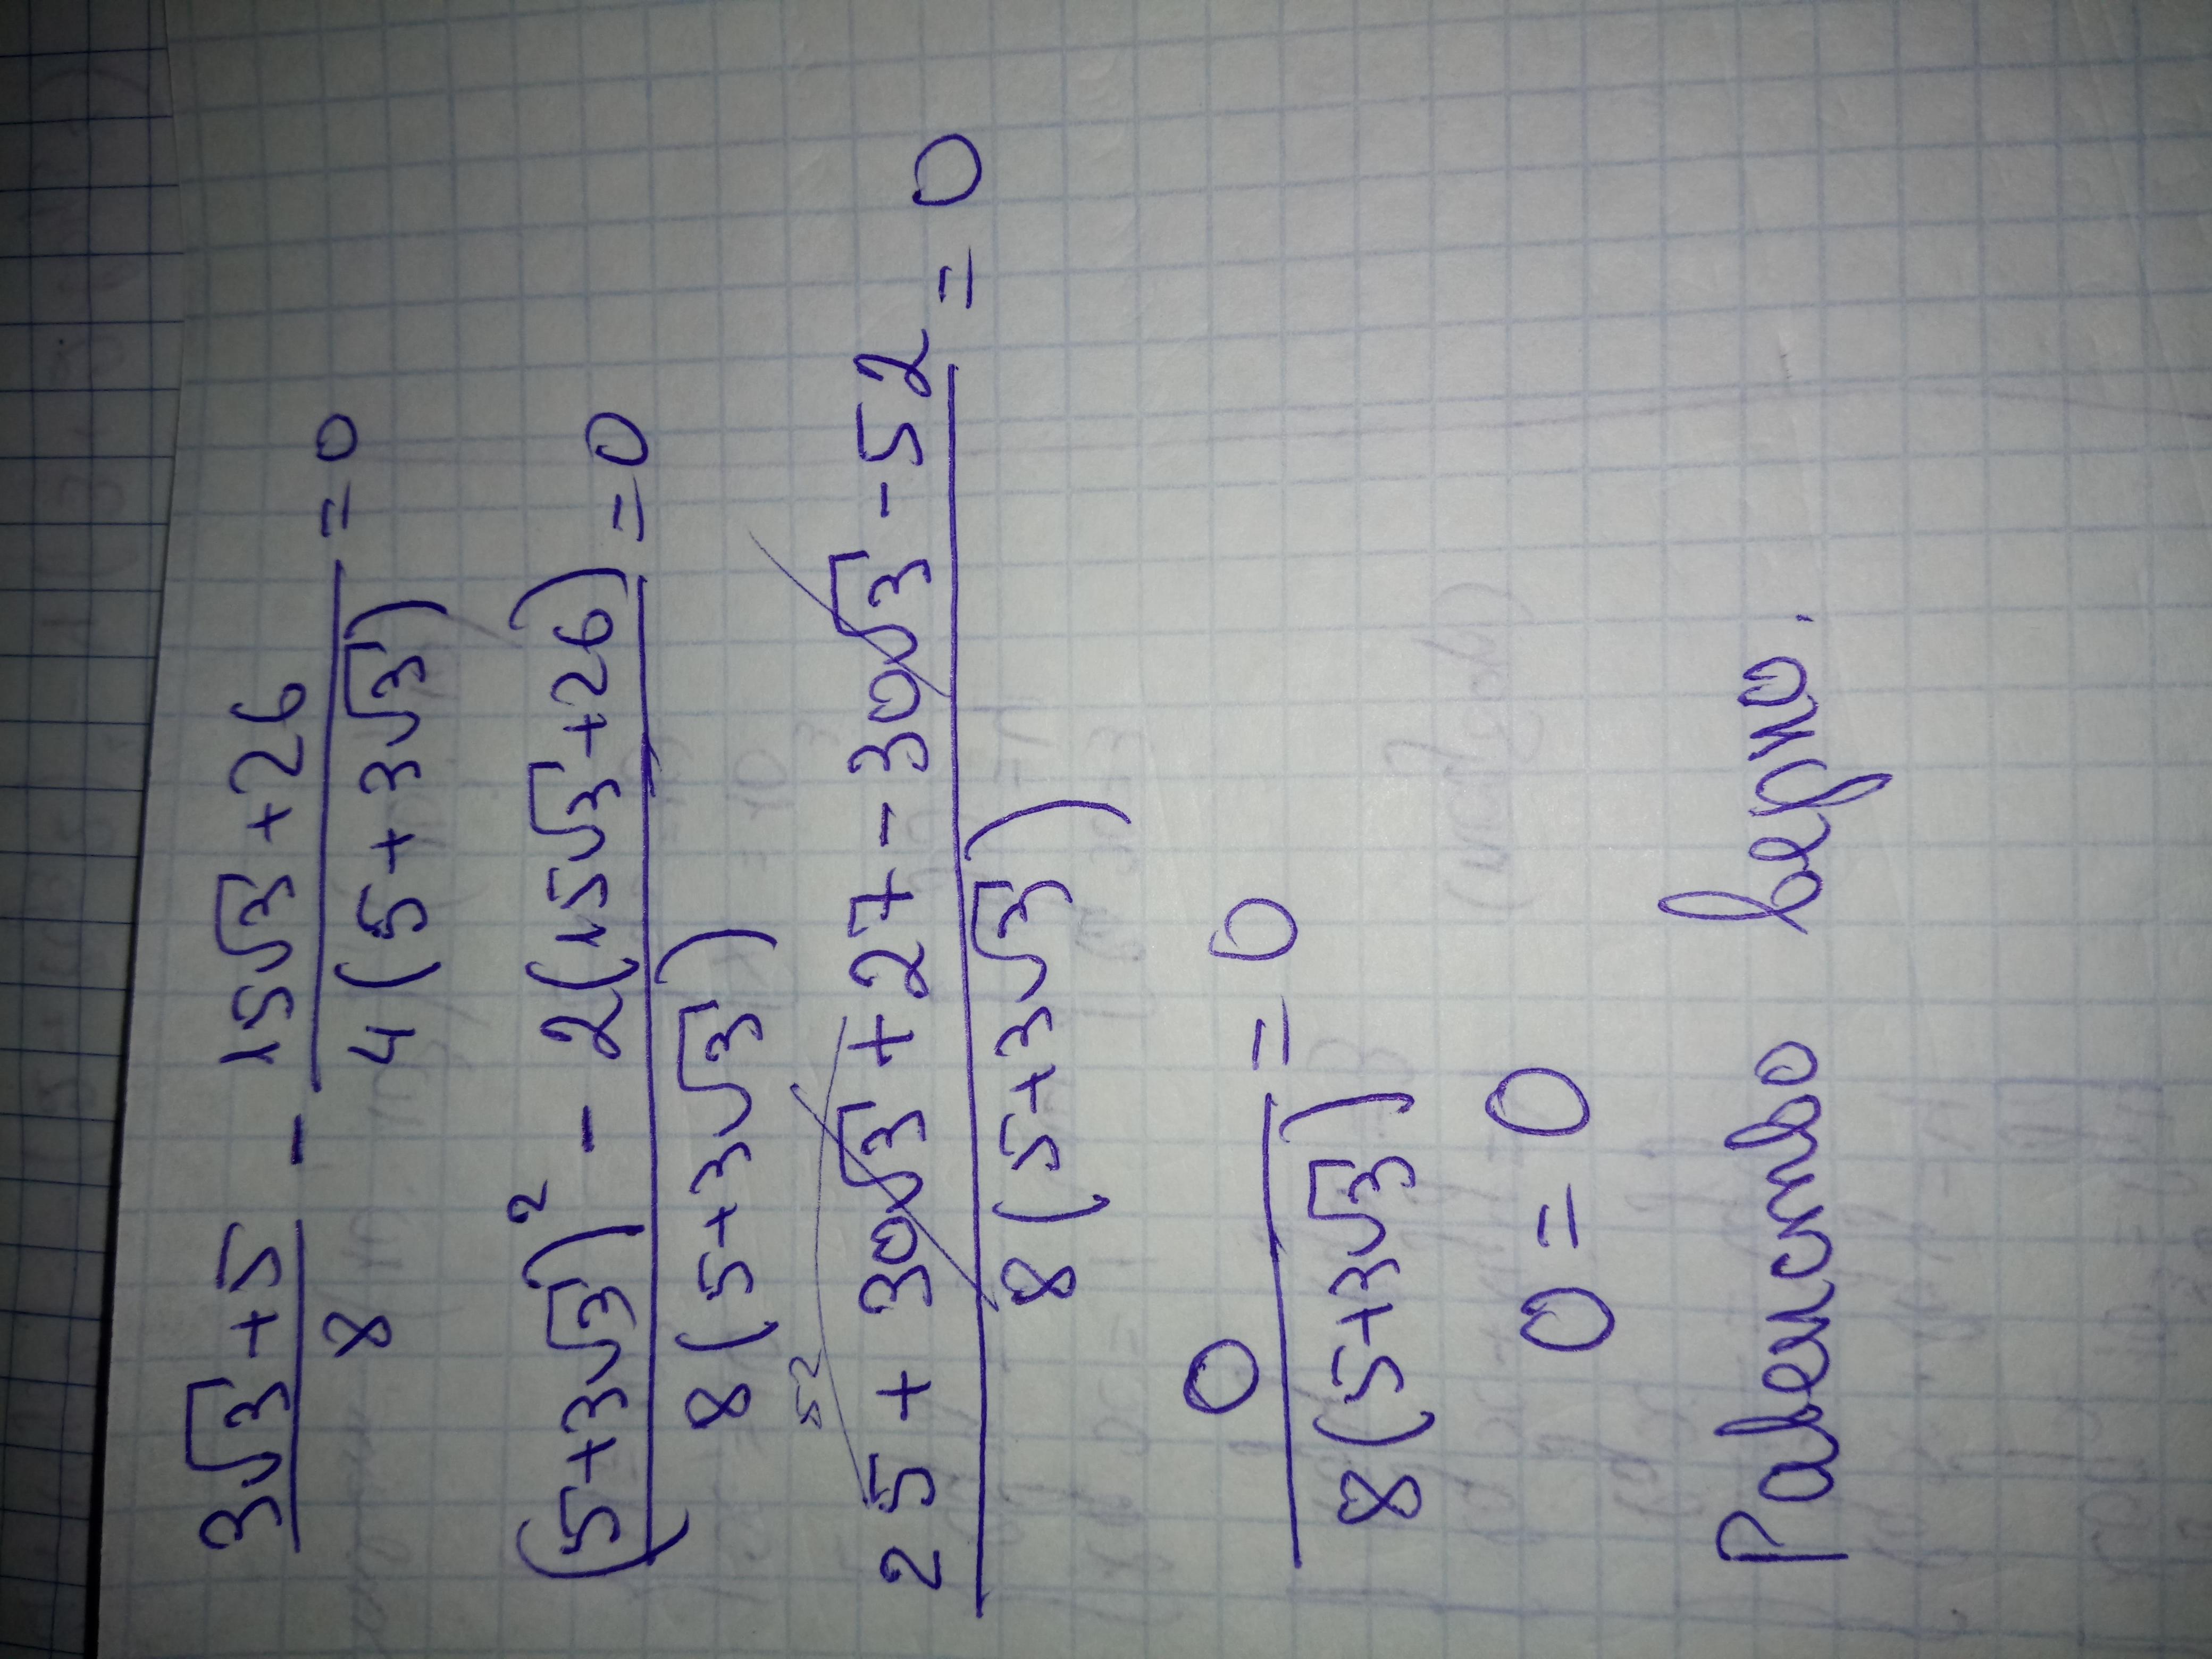 (3√3 + 5)/8 - (15√3 + 26)/(4(5 + 3√3)) = 0
((5+3√3)² - 2(15√3 + 26))/(8(5+3√3)) = 0
52
(25 + 30√3 + 27 - 30√3 - 52)/(8(5+3√3)) = 0
0/(8(5+3√3)) = 0
0 = 0
Равенство верно.